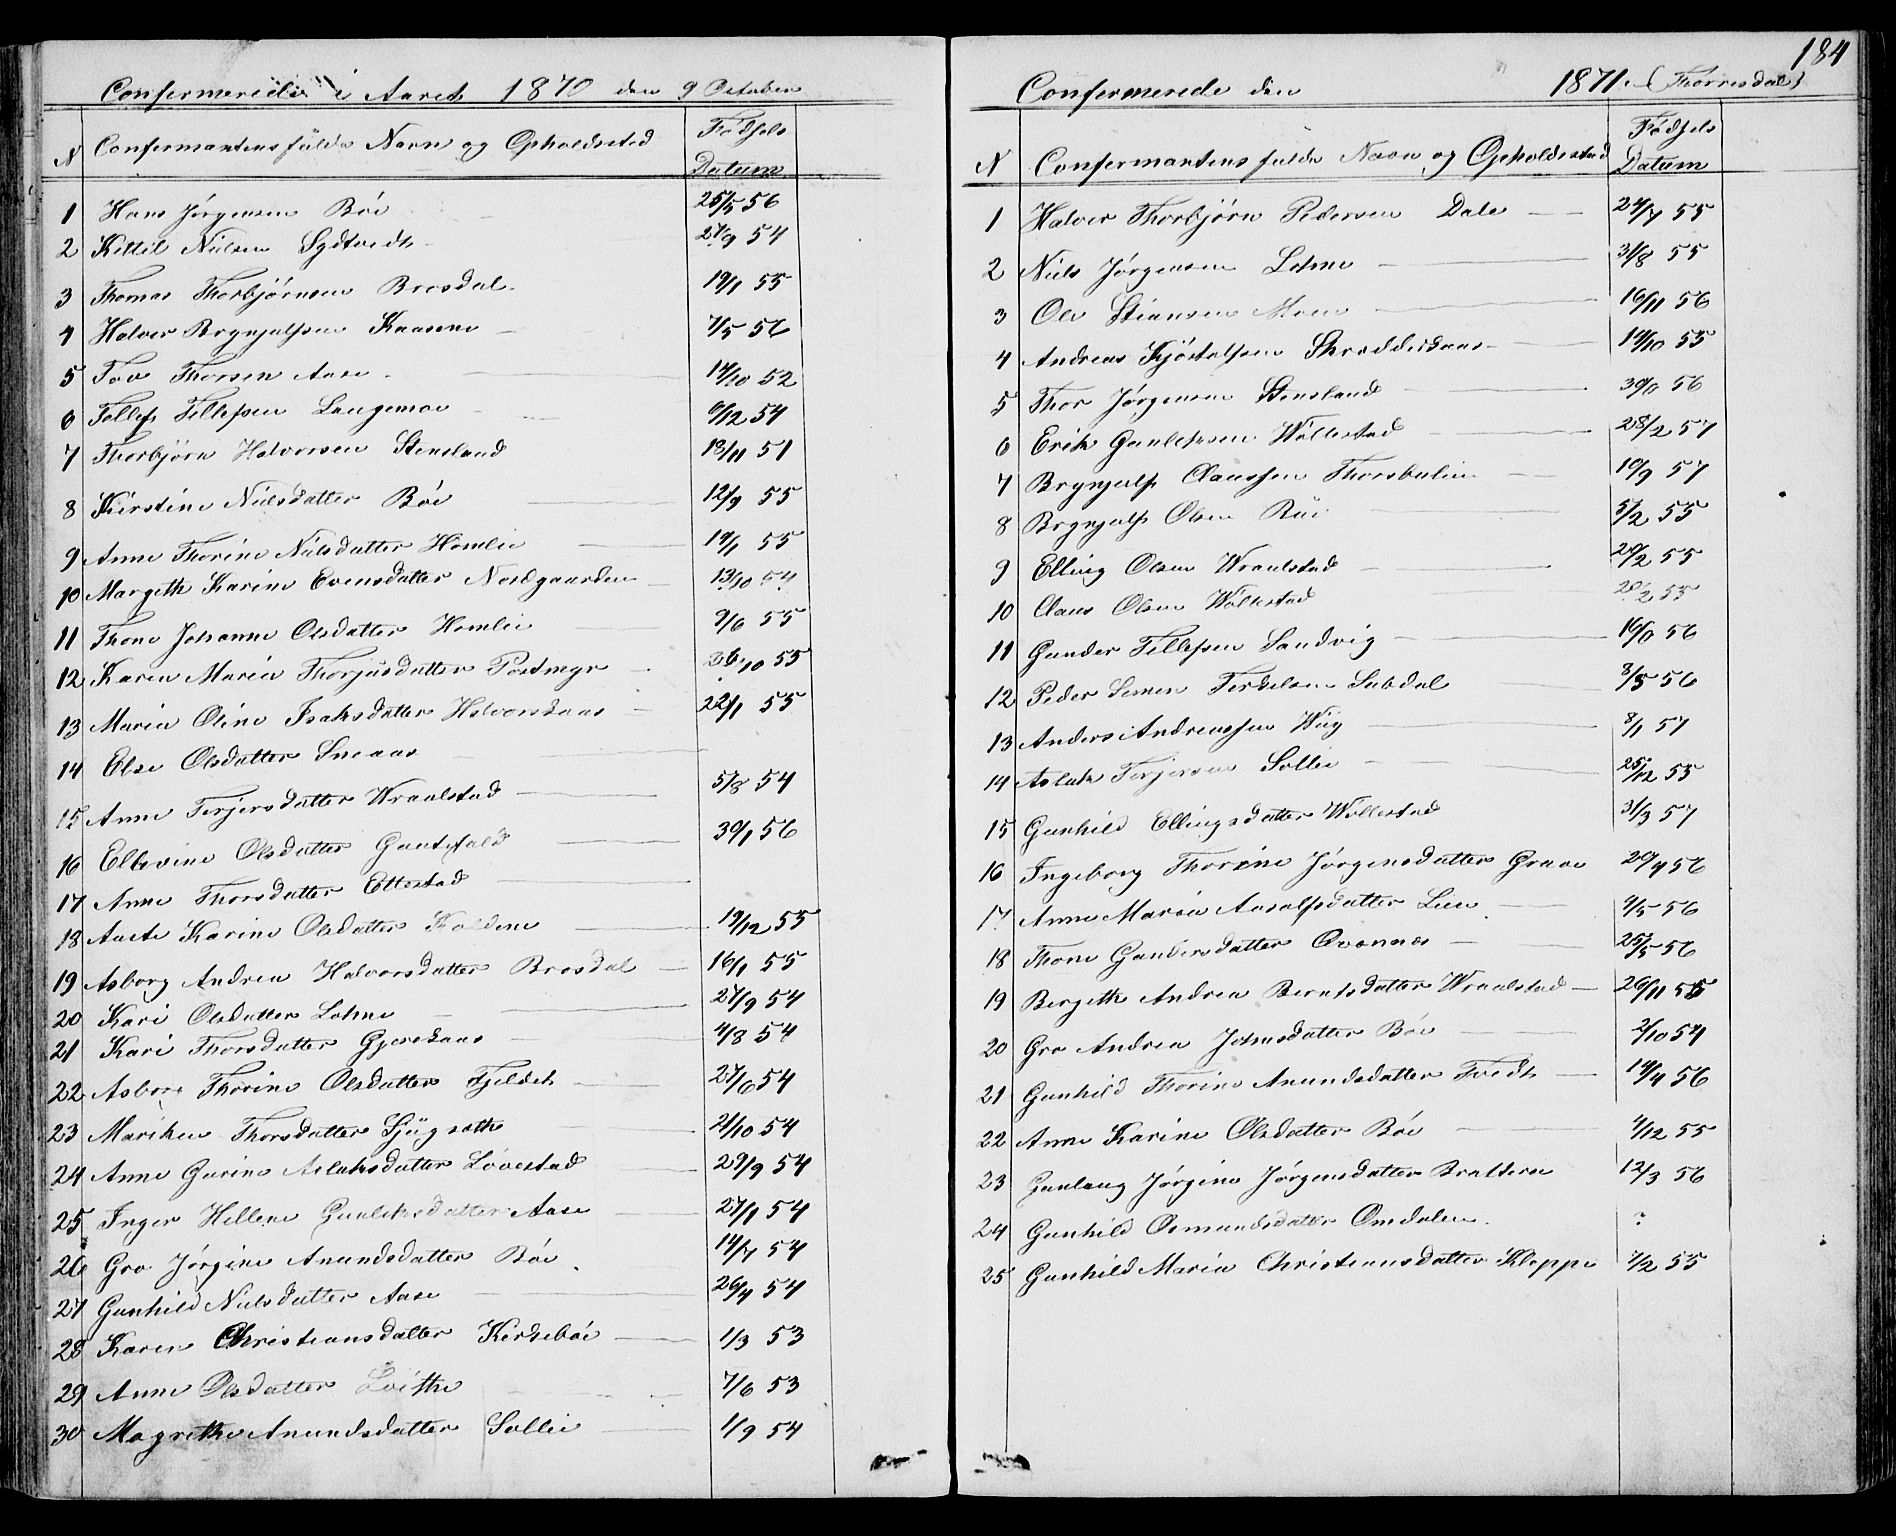 Confermerede i Aaret 1870 den 9 October
N Confermantens fulde Navn og Opholdssted Fødsels Datum
1 Hans Jørgensen Böe 25/5 56
2 Kittil Nielsen Sydtvedt 27/9 54
3 Thomas Thorbjørnsen Brosdal 19/1 55
4 Halvor Brynjulfsen Kaasene 7/5 56
5 Tov Thorsen Aase 14/10 52
6 Tellef Tellefsen Langemoe 6/12 54
7 Thorbjørn Halvorsen Stensland 18/11 51
8 Kirstine Nielsdatter Böe 12/9 55
9 Anne Thorine Nielsdatter Homlie 19/1 55
10 Margith Karine Evensdatter Nordgaarden 13/10 54
11 Thone Johanne Olsdatter Homlie 9/6 55
12 Karen Maria Thorjusdatter Postmyr 26/10 55
13 Maria Oline Isaksdatter Halvorskaas 22/1 55
14 Else Olsdatter Sneaas
15 Anne Terjersdatter Wraalstad 5/8 54
16 Ellevine Olsdatter Gautefald 30/1 56
17 Anne Thorsdatter Ettestad
18 Aaste Karine Olsdatter Foldene 19/12 55
19 Asborg Andrea Halvorsdatter Brosdal 16/1 55
20 Kari Olsdatter Lohne 27/9 54
21 Kari Thorsdatter Gjerskaas 4/8 54
22 Asborg Thorine Olsdatter Fjeldet 27/6 54
23 Mariken Thorsdatter 21/10 54
24 Anne Gurine Aslaksdatter Lövestad 29/9 54
25 Inger Hellene Gunleksdatter Aase 27/1 54
26 Gro Jørgine Anundsdatter Böe 14/7 54
27 Gunhild Nielsdatter Aase 26/4 54
28 Karen Christiansdatter Kirkeböe 1/3 53
29 Anne Olsdatter 7/6 53
30 Magrethe Anundsdatter Sollie 1/9 54
184
Confermerede den 1871. (Thorresdal)
N Confermantens fulde Navn og Opholdsstad Fødsels Datum
1 Halvor Thorbjörn Pedersen Dale 24/7 55
2 Niels Jørgensen Lohne 31/8 55
3 Ole Stiansen Moen 16/11 56
4 Andreas Kjöstolfsen Skreddersaas 14/10 55
5 Thor Jørgensen Stensland 56
6 Erik Gunleksen Wöllestad 28/2 57
7 Brynjulf Claussen Thorsbulin 10/9 57
8 Brynjulf Olsen Röi 5/2 55
9 Elling Olsen Wraalstad 20/2 55
10 Claus Olsen Wöllestad 55
11 Gunder Tellefsen Sandvig 56
12 Peder Semen Terkelsen Subdal 8/5 56
13 Anders Andreassen Wiig 8/1 57
14 Aslak Terjersen Sollie 25/12 55
15 Gunhild Ellingsdatter Wöllestad 31/3 57
16 Ingeborg Thorine Jørgensdatter Grave 56
17 Anne Maria Aasolfsdatter Lien 9/5 56
18 Thone Gundersdatter Qvennes 25/5 56
19 Bergith Andrea Berntsdatter Wraalstad 26/11 55
20 Gro Andrea Johnsdatter Böe 2/10 54
21 Gunhild Thorine Anundsdatter Tvedt 14/4 56
22 Anne Karine Olsdatter Böe 4/12 55
23 Gunlaug Jørgine Jørgensdatter Brattern 12/3 56
24 Gunhild Osmundsdatter Omdalen ?
25 Gunhild Maria Christiansdatter Kleppe 7/2 55